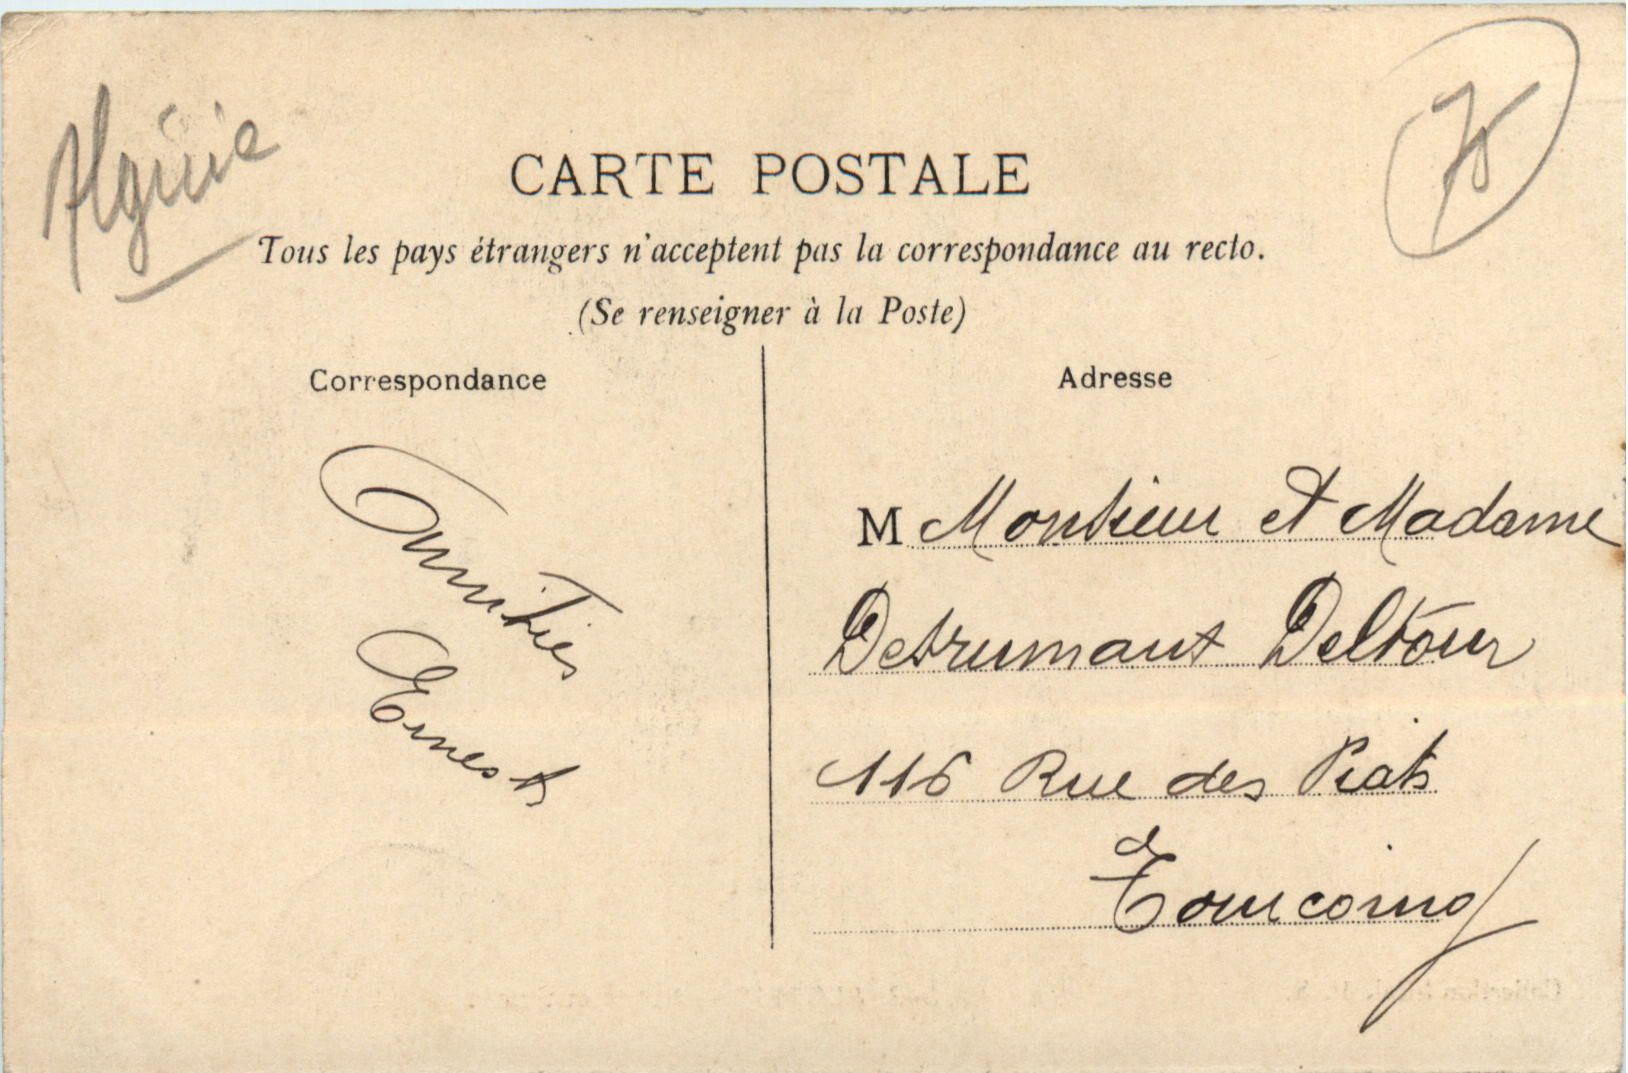 Algérie
CARTE POSTALE
Tous les pays étrangers n'acceptent pas la correspondance au recto.
(Se renseigner à la Poste)
Correspondance
Amitiés
Ernest
Adresse
M Monsieur et Madame
Destrumaux Deltour
116 Rue des Piats
Tourcoing